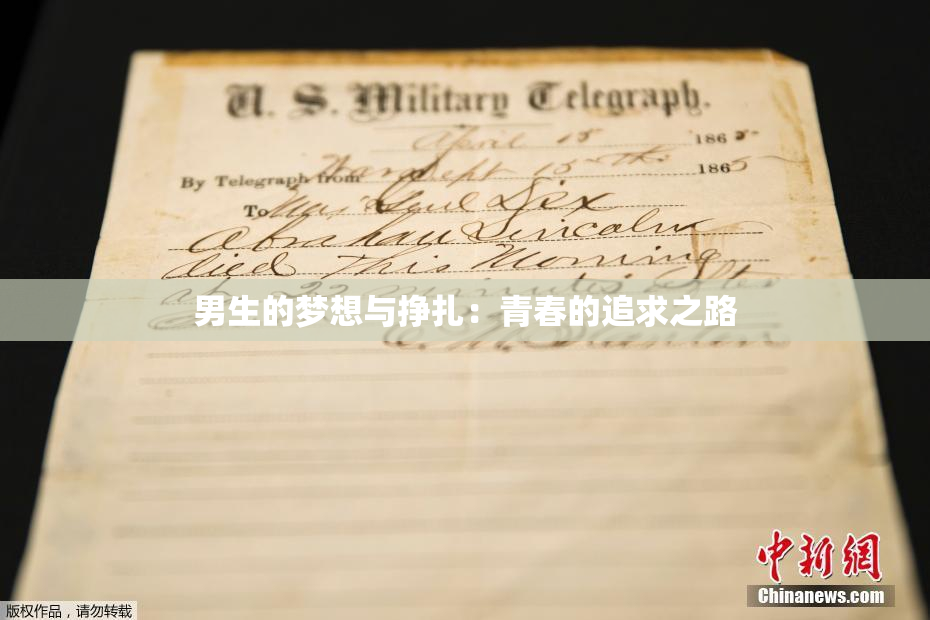 U. S. Military Telegraph.
April 15 1865
By Telegraph from War Dept 15th 1865
To Maj Genl Dix
Abraham Lincoln
died This Morning
at 22 minutes after
男生的梦想与挣扎：青春的追求之路
E. M. Stanton
中新网
Chinanews.com
版权作品，请勿转载